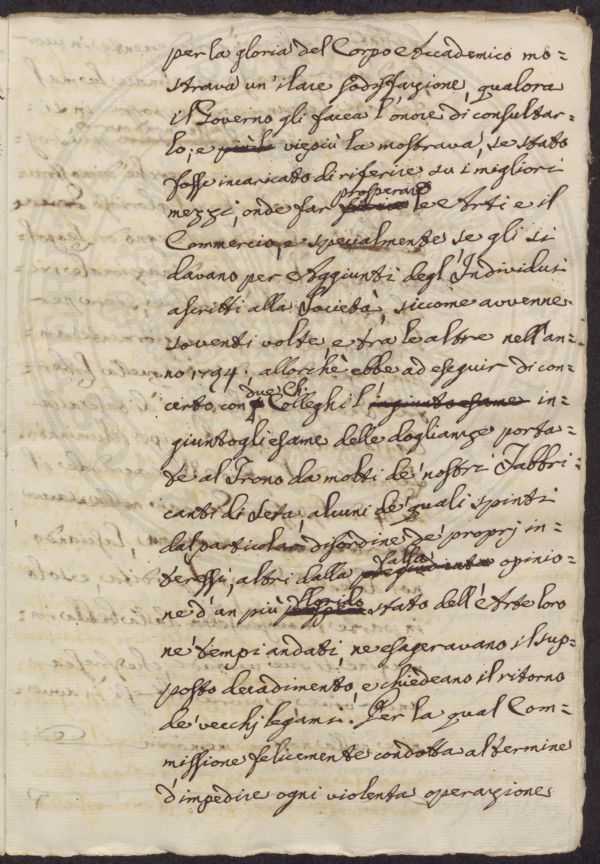 per la gloria del Corpo Accademico mo=
strava un'ilare sodisfazione, qualora
il Governo gli facea l'onore di consultar=
lo; e più viepiù la mostrava, se stato
fosse incaricato di riferire su i migliori
mezzi, onde far prosperare le Arti e il
Commercio, e specialmente se gli si
davano per Aggiunti degl'Individui
ascritti alla Società, siccome avvenne
soventi volte, e tra le altre nell'an=
no 1794. allorchè ebbe ad eseguir di con=
certo, con due Ch. Colleghi l' ingiunto esame in=
giuntogli esame delle doglianze porta=
te al Trono da molti de' nostri Fabbri=
canti di Seta, alcuni de' quali spinti
dal particolar disordine de' proprj in=
teressi, altri dalla falsa opinio=
ne d'un più florido stato dell'Arte loro
ne' tempi andati, ne esageravano il sup=
posto decadimento, e chiedeano il ritorno
de' vecchj legami. Per la qual Com=
missione felicemente condotta al termine
d'impedire ogni violenta operazione